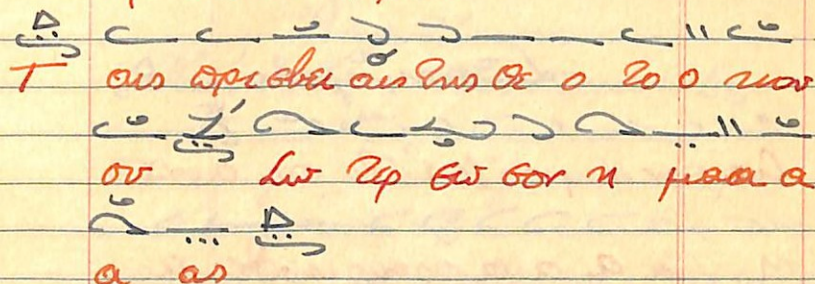 Ταις πρε σβει αις της Θε ο το ο κου
ου Σω τερ σω σον η μαα α
α ας